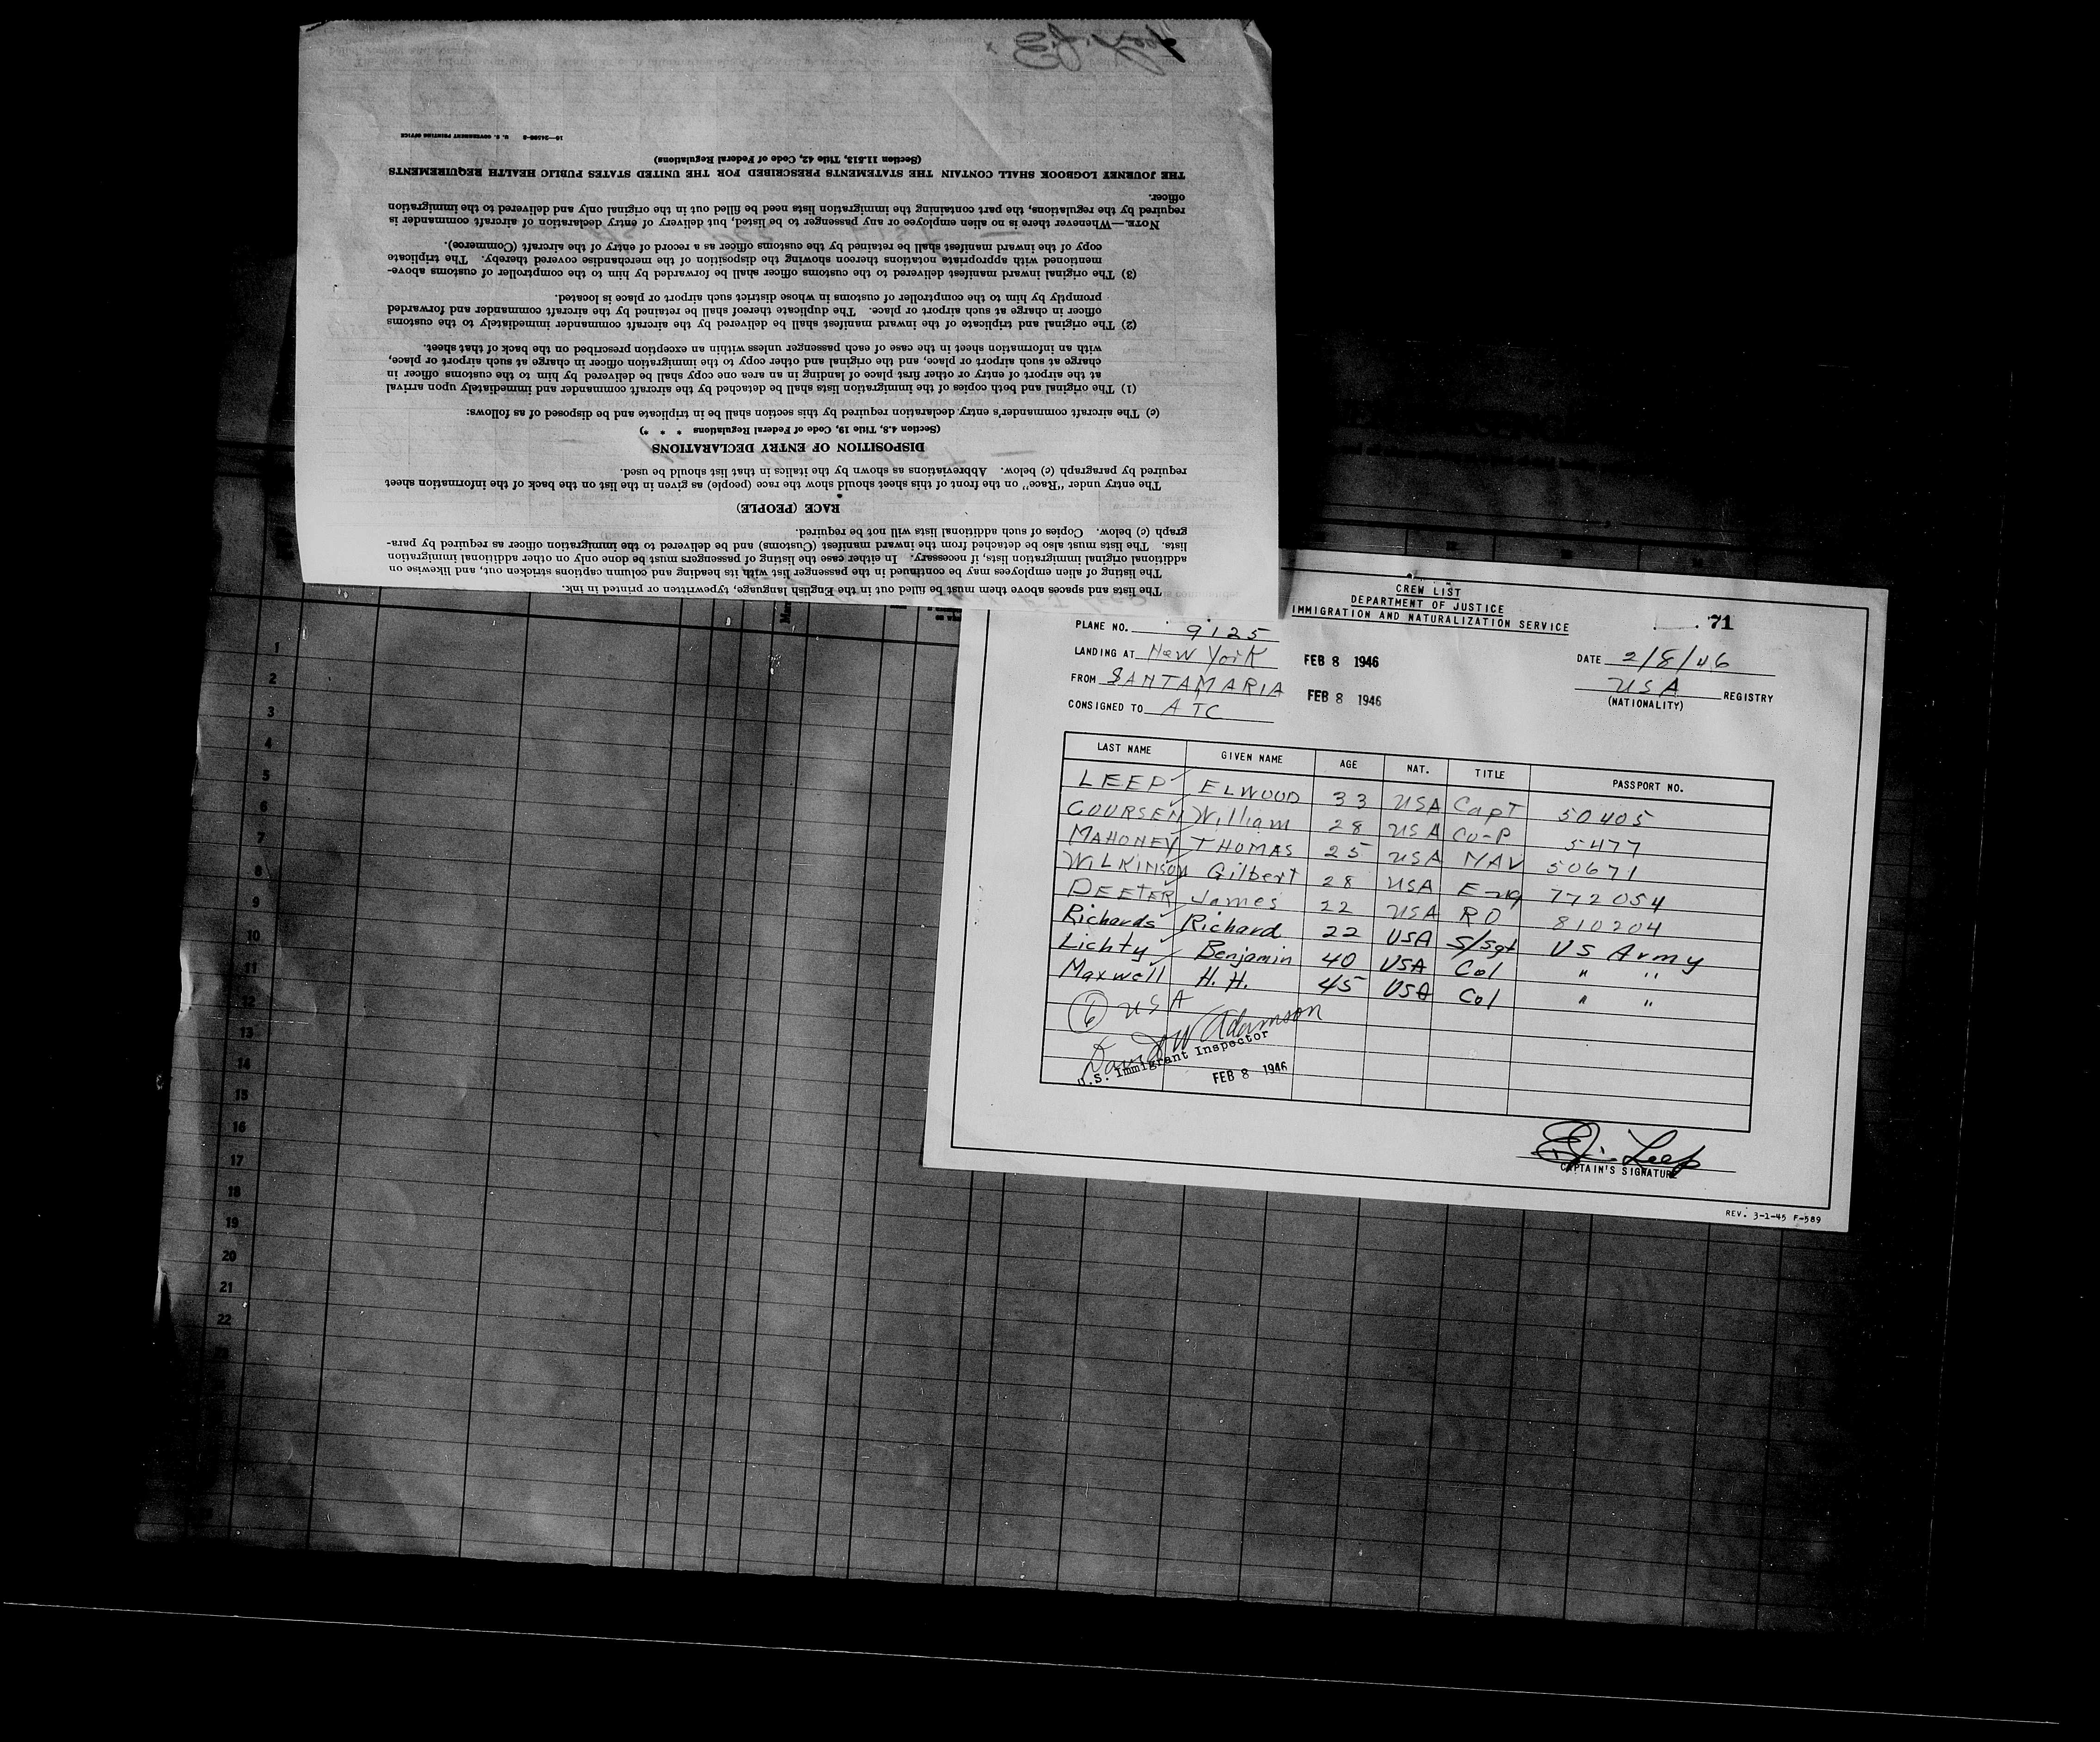 The lists and spaces above them must be filled out in the English language, typewritten or printed in ink.
The listing of alien employees may be continued in the passenger list with its heading and column captions stricken out, and likewise on
additional original immigration lists, if necessary. In either case the listing of passengers must be done only on other additional immigration
lists. The lists must also be detached from the inward manifest (Customs) and be delivered to the immigration officer as required by para-
graph (c) below. Copies of such additional lists will not be required.
RACE (PEOPLE)
The entry under "Race" on the front of this sheet should show the race (people) as given in the list on the back of the information sheet
required by paragraph (c) below. Abbreviations as shown by the italics in that list should be used.
DISPOSITION OF ENTRY DECLARATIONS
(Section 4.8, Title 19, Code of Federal Regulations * * *)
(c) The aircraft commander's entry declaration required by this section shall be in triplicate and be disposed of as follows:
(1) The original and both copies of the immigration lists shall be detached by the aircraft commander and immediately upon arrival
at the airport of entry or other first place of landing in an area one copy shall be delivered by him to the customs officer in
charge at such airport or place, and the original and other copy to the immigration officer in charge at such airport or place,
with an information sheet in the case of each passenger unless within an exception prescribed on the back of that sheet.
(2) The original and triplicate of the inward manifest shall be delivered by the aircraft commander immediately to the customs
officer in charge at such airport or place. The duplicate thereof shall be retained by the aircraft commander and forwarded
promptly by him to the comptroller of customs in whose district such airport or place is located.
(3) The original inward manifest delivered to the customs officer shall be forwarded by him to the comptroller of customs above-
mentioned with appropriate notations thereon showing the disposition of the merchandise covered thereby. The triplicate
copy of the inward manifest shall be retained by the customs officer as a record of entry of the aircraft (Commerce).
NOTE.—Whenever there is no alien employee or any passenger to be listed, but delivery of entry declaration of aircraft commander is
required by the regulations, the part containing the immigration lists need be filled out in the original only and delivered to the immigration
officer.
THE JOURNEY LOGBOOK SHALL CONTAIN THE STATEMENTS PRESCRIBED FOR THE UNITED STATES PUBLIC HEALTH REQUIREMENTS
(Section 11.513, Title 42, Code of Federal Regulations)
U. S. GOVERNMENT PRINTING OFFICE
CREW LIST
DEPARTMENT OF JUSTICE
IMMIGRATION AND NATURALIZATION SERVICE
71
PLANE NO. 9125
LANDING AT New York FEB 8 1946 DATE 2/8/46
FROM SANTAMARIA FEB 8 1946 USA REGISTRY
(NATIONALITY)
CONSIGNED TO ATC
LAST NAME GIVEN NAME AGE NAT. TITLE PASSPORT NO.
LEEP ELWOOD 33 USA CapT 50405
COURSEN William 28 USA Co-P 5477
MAHONEY THOMAS 25 USA NAV 50671
WILKINSON Gilbert 28 USA Eng 772054
DEETER James 22 USA RO 810204
Richards Richard 22 USA S/Sgt US Army
Lichty Benjamin 40 USA Col " "
Maxwell H. H. 45 USA Col " "
6 USA
David W Adamson
U.S. Immigrant Inspector
FEB 8 1946
E.J. Leep
CAPTAIN'S SIGNATURE
REV. 3-1-45 F-589
1
2
3
4
5
6
7
8
9
10
11
12
13
14
15
16
17
18
19
20
21
22